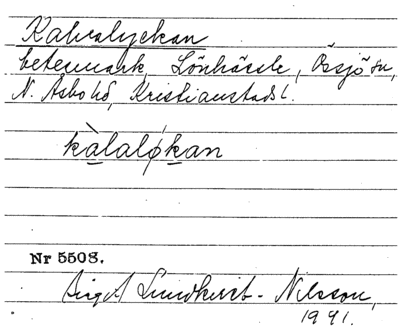 Kalvalyckan
betesmark, Lönhässle, Össjö sn,
N. Åsbo hd, Kristianstads l.
kàlaløkan
Nr 5508.
Birgit Lundkvist-Nilsson,
1941.